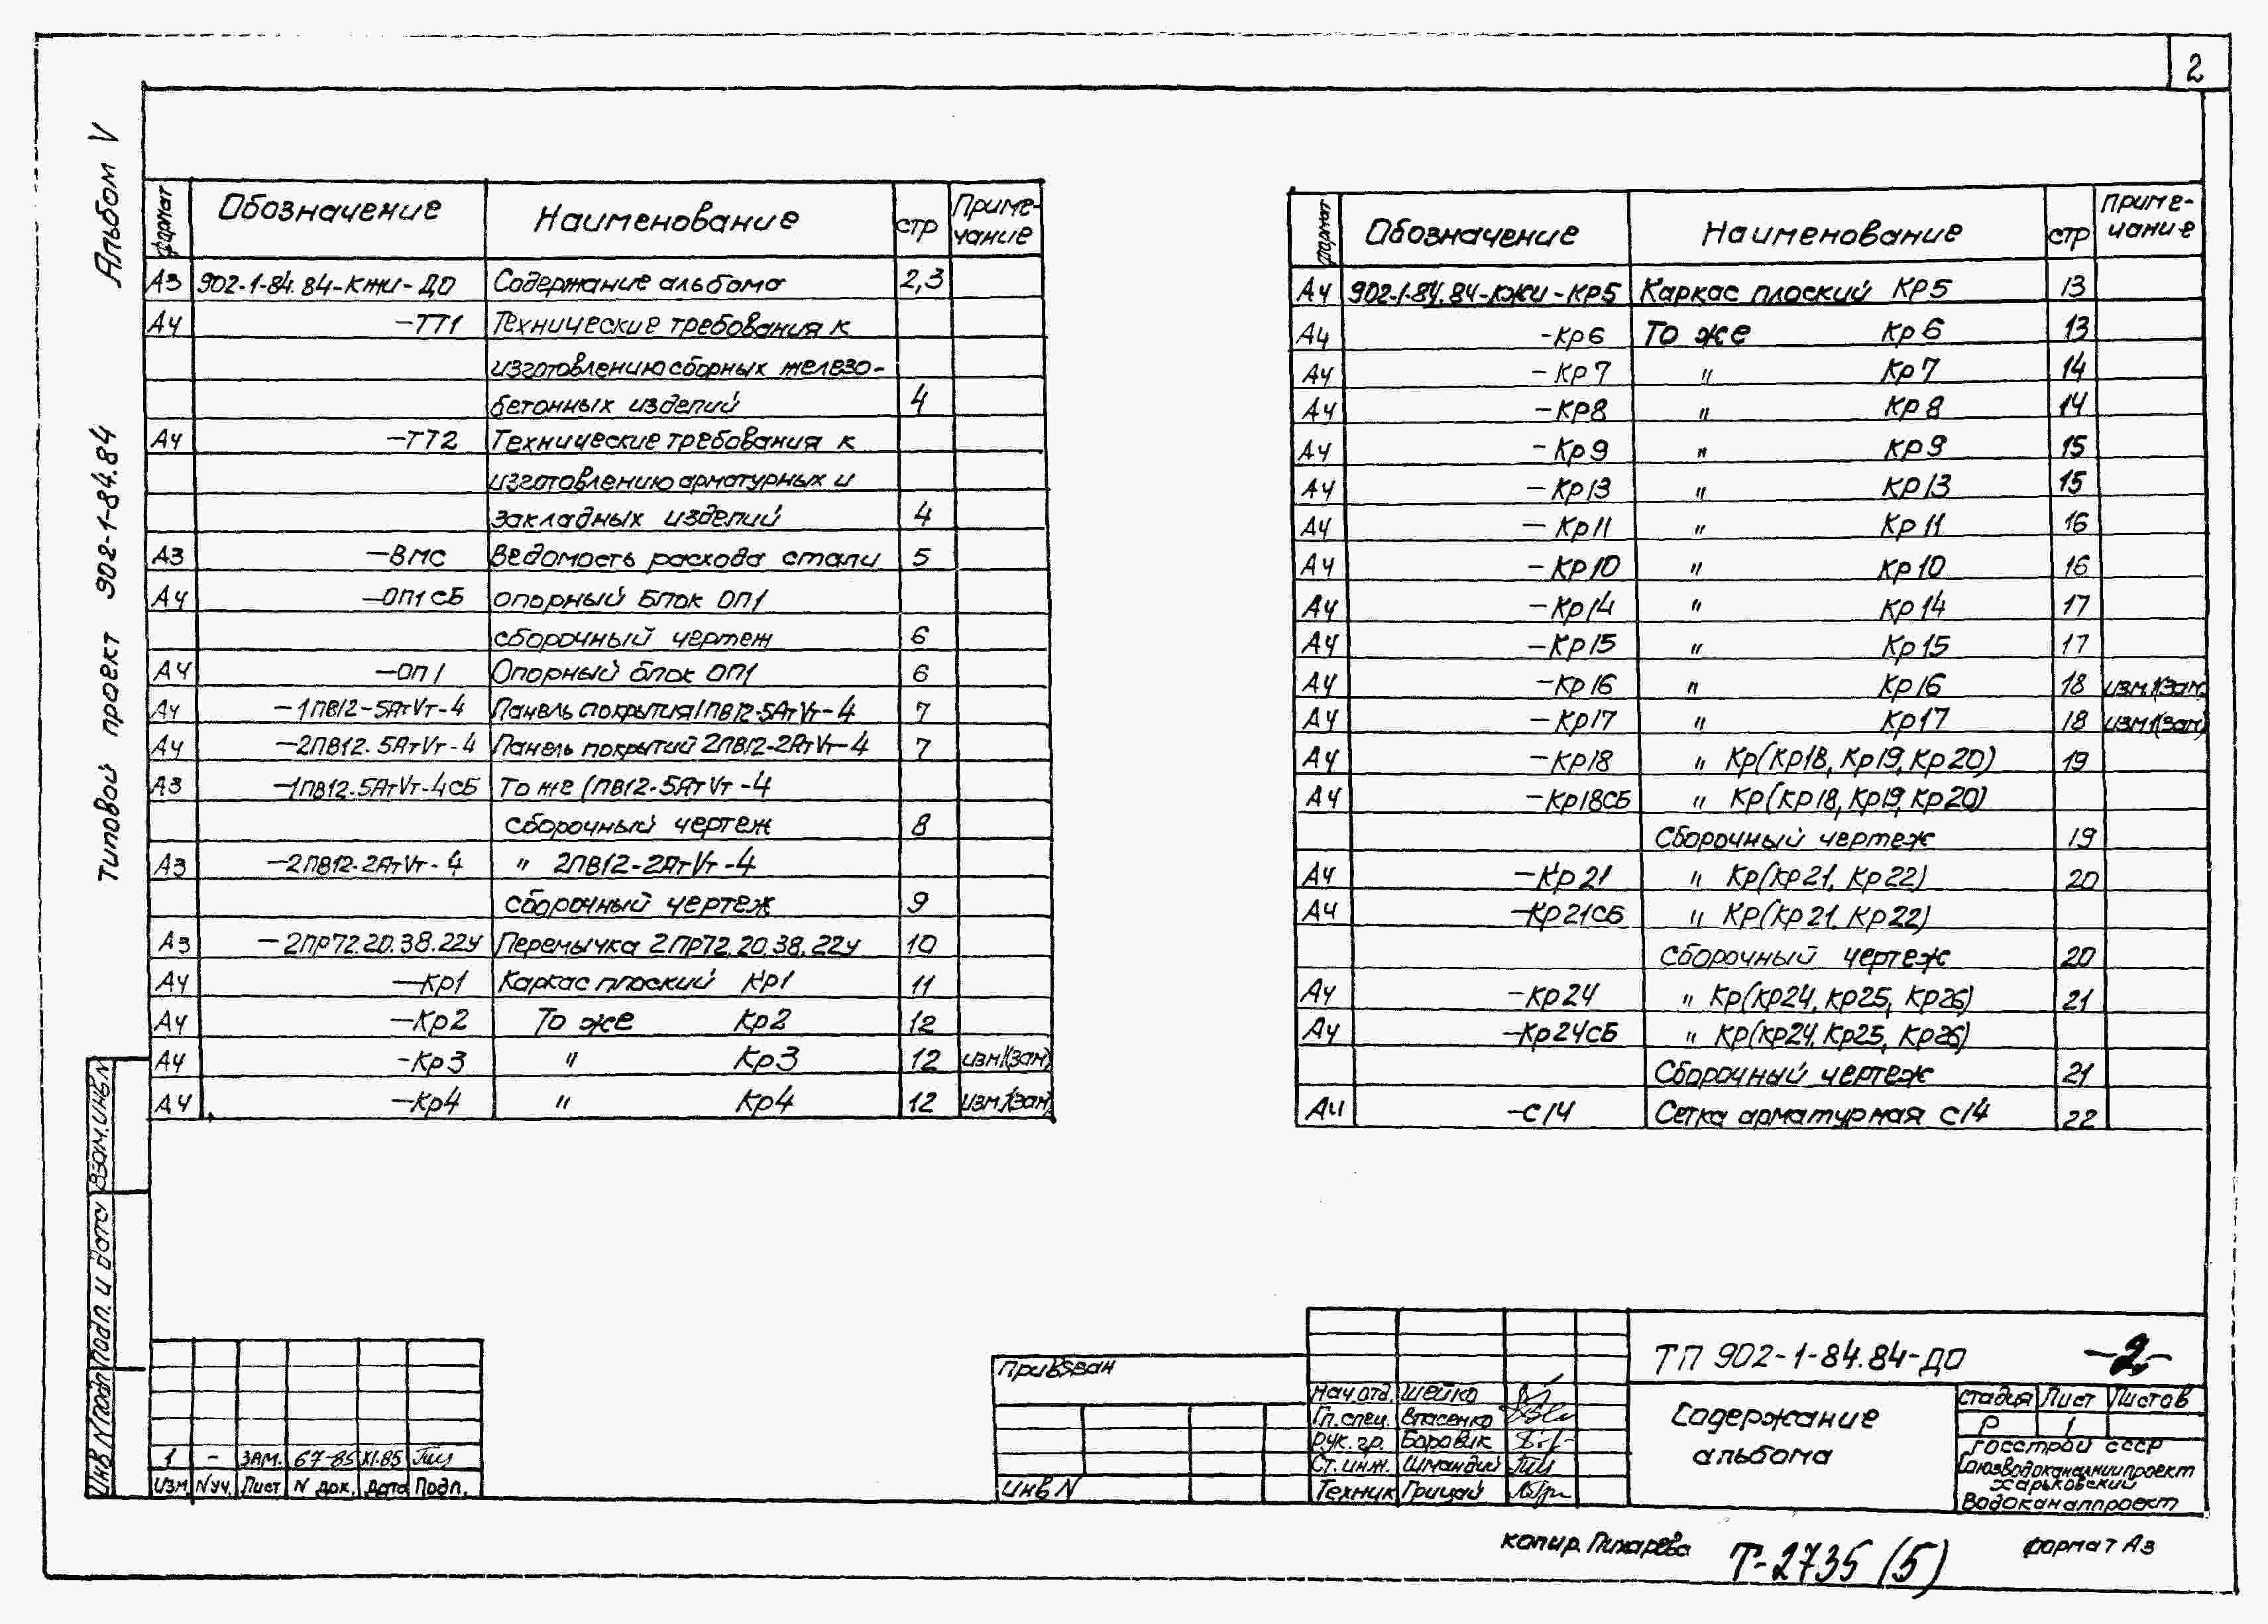 2
Альбом V
Типовой проект 902-1-84.84
Формат Обозначение Наименование стр Приме-
чание
А3 902-1-84.84-КЖИ-ДО Содержание альбома 2,3
А4 -ТТ1 Технические требования к
изготовлению сборных железо-
бетонных изделий 4
А4 -ТТ2 Технические требования к
изготовлению арматурных и
закладных изделий 4
А3 -ВМС Ведомость расхода стали 5
А4 -ОП1СБ Опорный блок ОП1
сборочный чертеж 6
А4 -ОП1 Опорный блок ОП1 6
А4 -1ПВ12-5АтVт-4 Панель покрытия 1ПВ12-5АтVт-4 7
А4 -2ПВ12.5АтVт-4 Панель покрытий 2ПВ12-2АтVт-4 7
А3 -1ПВ12.5АтVт-4СБ То же 1ПВ12-5АтVт-4
сборочный чертеж 8
А3 -2ПВ12.2АтVт-4 " 2ПВ12-2АтVт-4
сборочный чертеж 9
А3 -2ПР72.20.38.22у Перемычка 2ПР72.20.38.22у 10
А4 -Кр1 Каркас плоский Кр1 11
А4 -Кр2 То же Кр2 12
А4 -Кр3 " Кр3 12 изм1(зам)
А4 -Кр4 " Кр4 12 изм.1(зам)
Формат Обозначение Наименование стр Приме-
чание
А4 902-1-84.84-КЖИ-КР5 Каркас плоский КР5 13
А4 -Кр6 То же Кр6 13
А4 -КР7 " Кр7 14
А4 -КР8 " КР8 14
А4 -Кр9 " КР9 15
А4 -Кр13 " КР13 15
А4 -Кр11 " Кр11 16
А4 -КР10 " Кр10 16
А4 -Кр14 " Кр14 17
А4 -Кр15 " Кр15 17
А4 -Кр16 " Кр16 18 изм.1(зам.
А4 -Кр17 " Кр17 18 изм1(зам)
А4 -Кр18 " Кр(Кр18, Кр19, Кр20) 19
А4 -Кр18СБ " Кр(Кр18, Кр19, Кр20)
Сборочный чертеж 19
А4 -Кр21 " Кр(Кр21, Кр22) 20
А4 -Кр21СБ " Кр(Кр21, Кр22)
Сборочный чертеж 20
А4 -Кр24 " Кр(Кр24, Кр25, Кр26) 21
А4 -Кр24СБ " Кр(Кр24, Кр25, Кр26)
Сборочный чертеж 21
А4 -С14 Сетка арматурная С14 22
Инв N подл Подп. и дата Взам.инв N
1 - ЗАМ. 67-85 XI.85
Изм N уч. Лист N док. Дата Подп.
Привязан
Инв N
Нач.отд. Шейко
Гл.спец. Власенко
Рук. гр. Боровик
Ст. инж. Шмандий
Техник Грицай
ТП 902-1-84.84-ДО -2-
Содержание
альбома
Стадия Лист Листов
Р 1
Госстрой СССР
Союзводоканалниипроект
Харьковский
Водоканалпроект
копир. Пихарева
Т-2735 (5)
формат А3